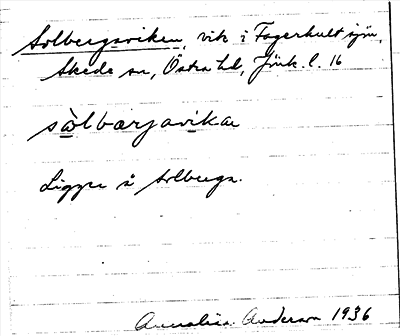 Solbergaviken, vik i Fagerhultsjön,
Skede sn, Östra hd, Jönk. l. 16
sòlbarjavikan
Ligger å Solberga.
Annalisa Anderson 1936